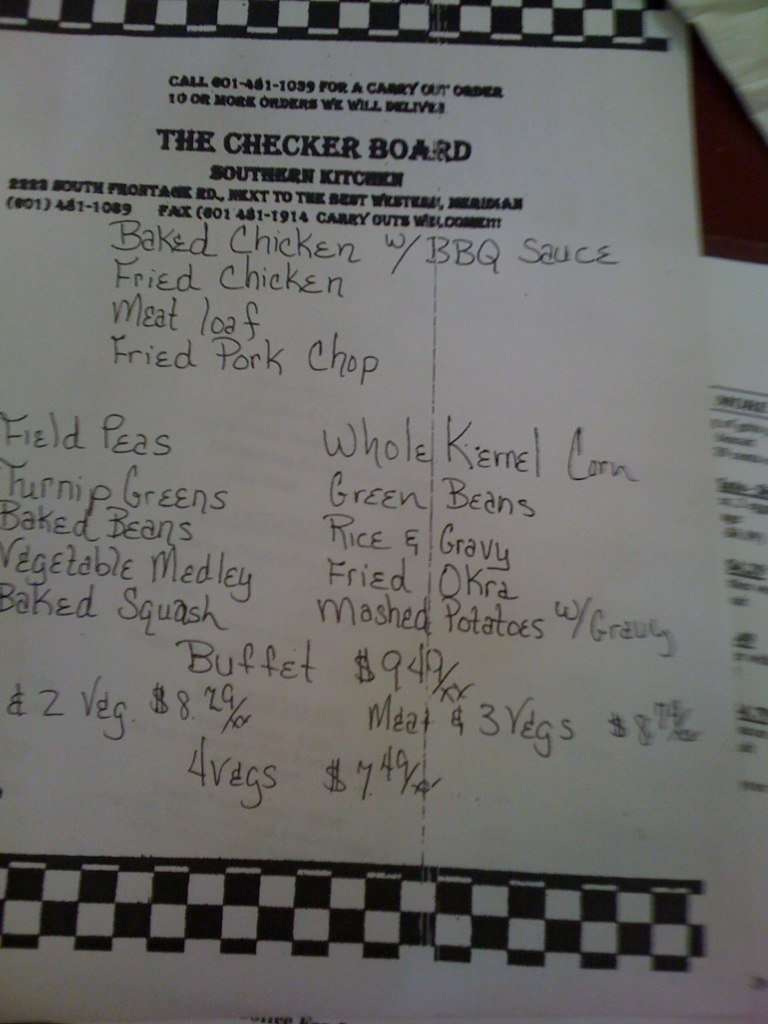 CALL 601-481-1039 FOR A CARRY OUT ORDER
10 OR MORE ORDERS WE WILL DELIVER
THE CHECKER BOARD
SOUTHERN KITCHEN
2222 SOUTH FRONTAGE RD., NEXT TO THE BEST WESTERN, MERIDIAN
(601) 481-1089 FAX (601 481-1914 CARRY OUTS WELCOME!!!
Baked Chicken w/ BBQ Sauce
Fried Chicken
Meat loaf
Fried Pork Chop
Field Peas Whole Kernel Corn
Turnip Greens Green Beans
Baked Beans Rice & Gravy
Vegetable Medley Fried Okra
Baked Squash Mashed Potatoes w/ Gravy
Buffet $9.49/xx
& 2 Veg. $8.29/xx Meat & 3 Vegs $8.79/xx
4 Vegs $7.49/xx